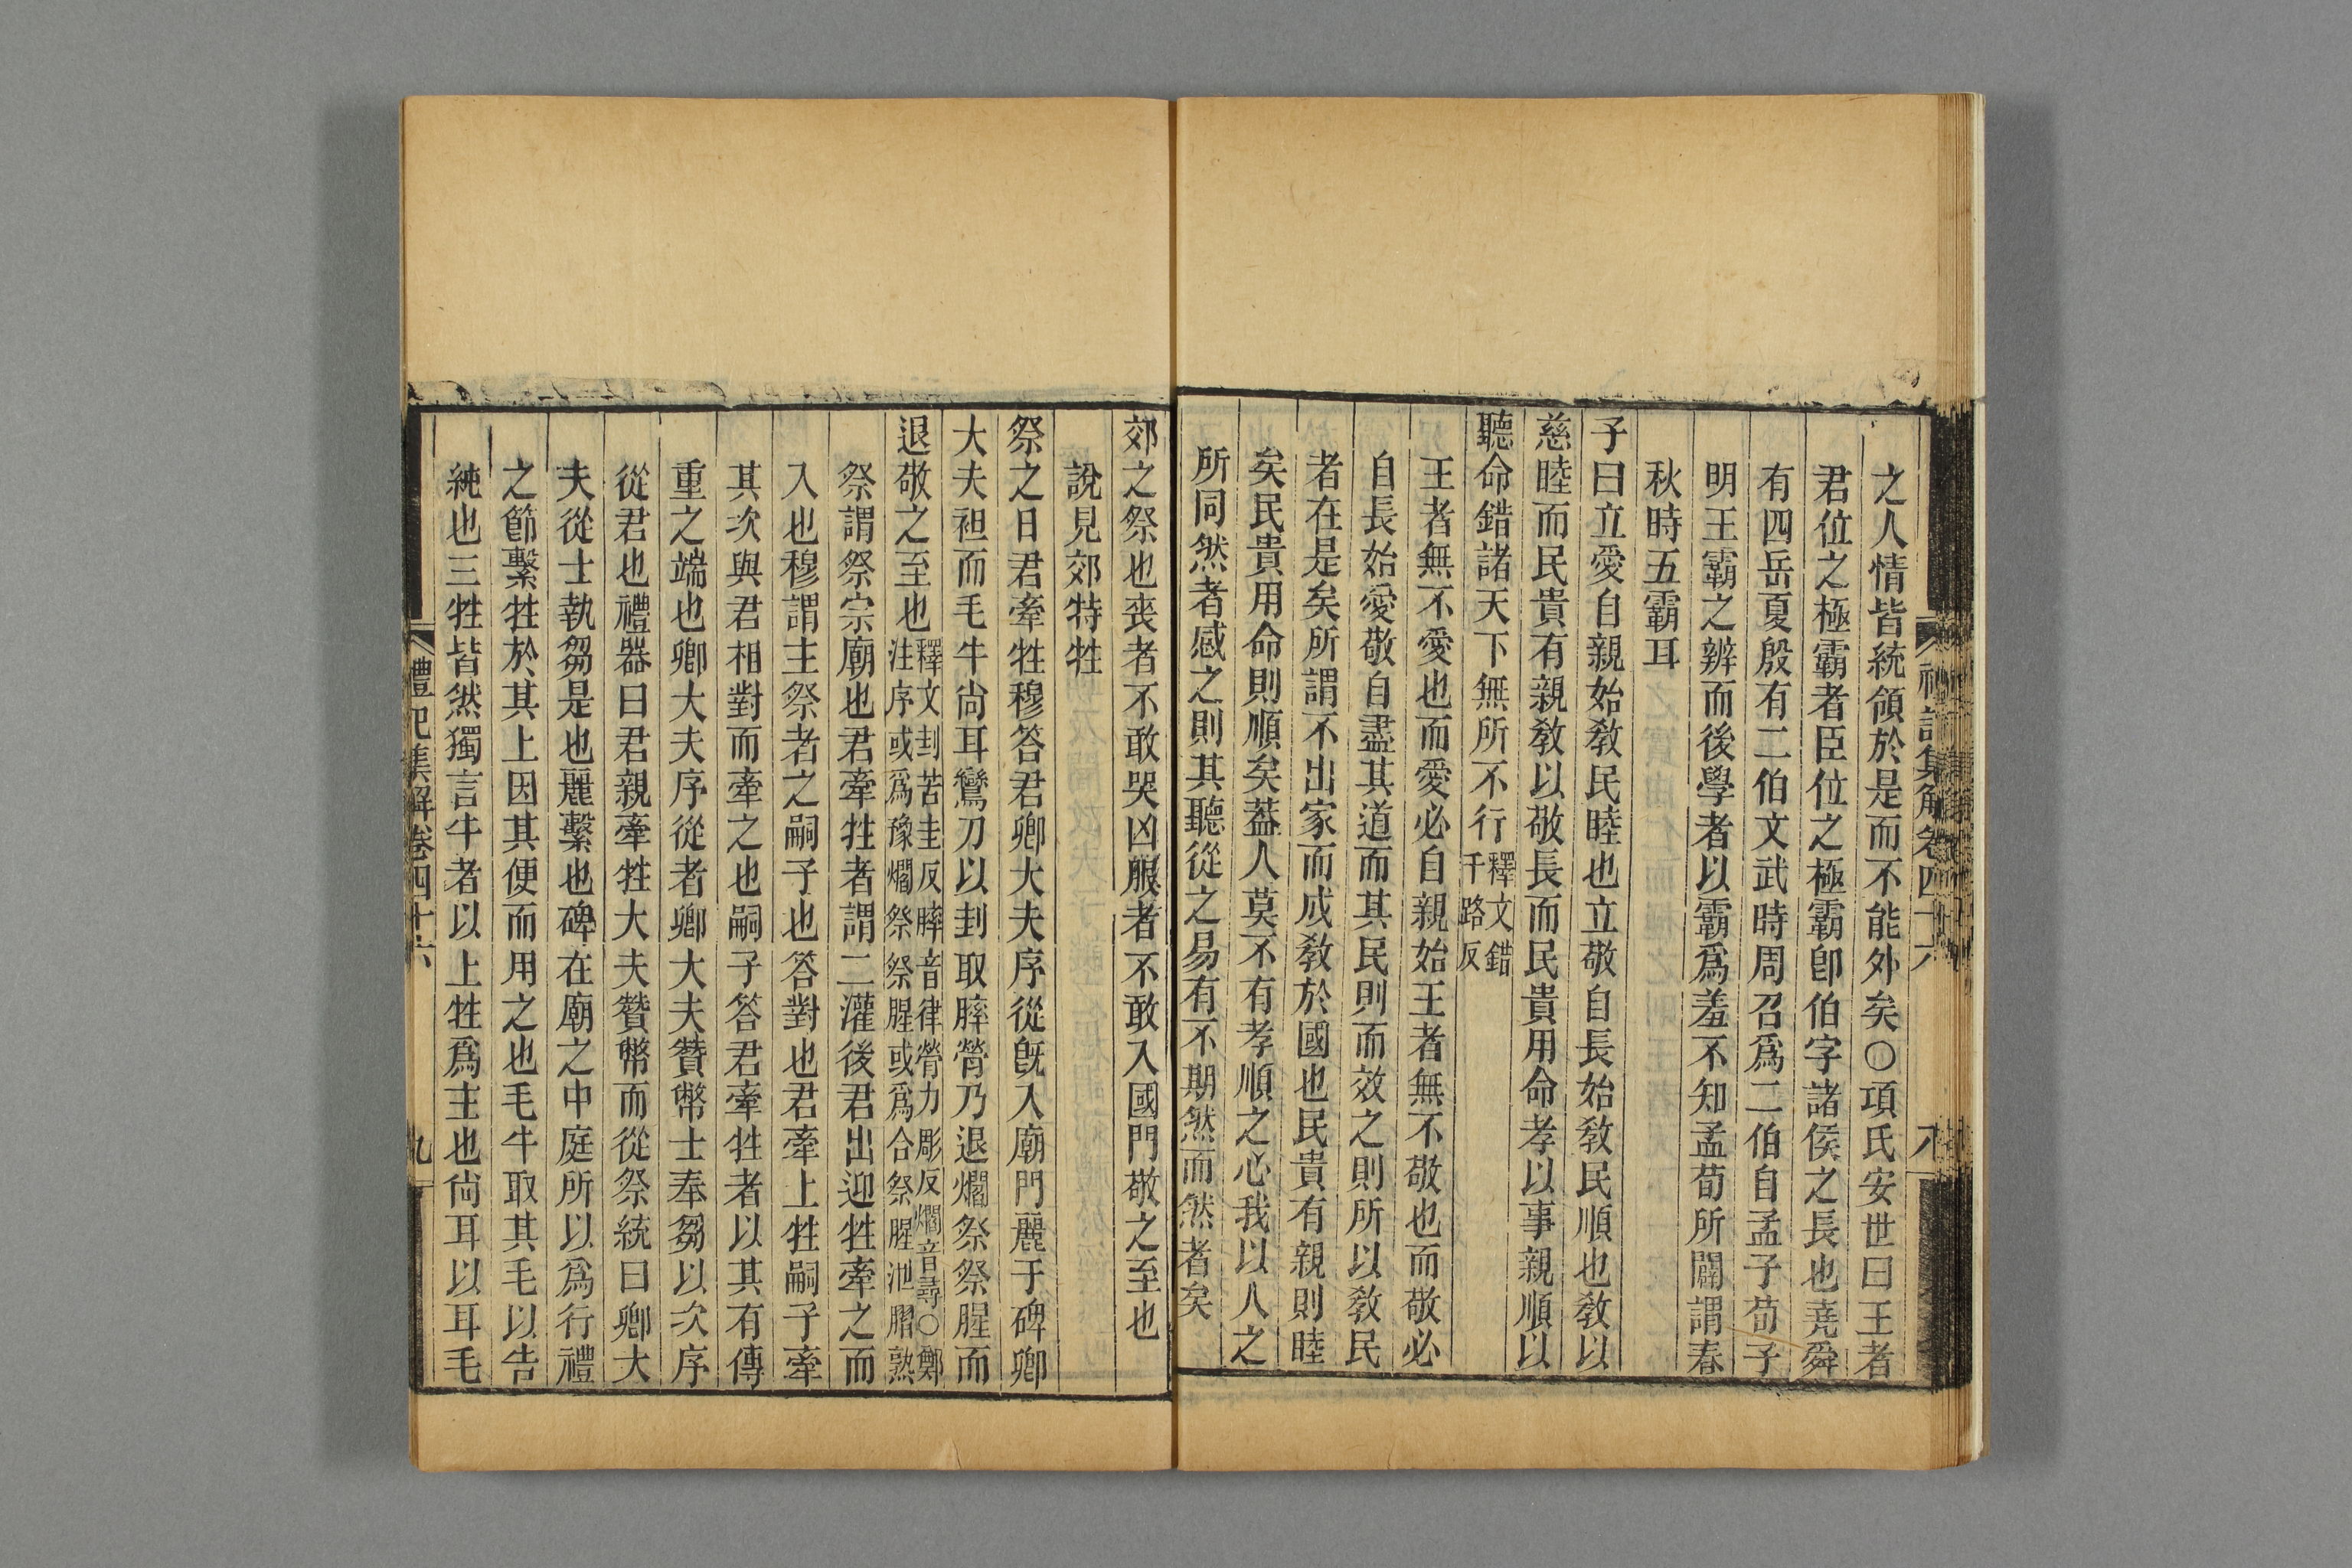 之人情皆統領於是而不能外矣○項氏安世曰王者
君位之極霸者臣位之極霸卽伯字諸侯之長也堯舜
有四岳夏殷有二伯文武時周召爲二伯自孟子荀子
明王霸之辨而後學者以霸爲羞不知孟荀所闢謂春
秋時五霸耳
子曰立愛自親始敎民睦也立敬自長始敎民順也敎以
慈睦而民貴有親敎以敬長而民貴用命孝以事親順以
聽命錯諸天下無所不行釋文錯
千路反
王者無不愛也而愛必自親始王者無不敬也而敬必
自長始愛敬自盡其道而其民則而效之則所以敎民
者在是矣所謂不出家而成敎於國也民貴有親則睦
矣民貴用命則順矣蓋人莫不有孝順之心我以人之
所同然者感之則其聽從之易有不期然而然者矣
禮記集解卷四十六 八
郊之祭也喪者不敢哭凶服者不敢入國門敬之至也
說見郊特牲
祭之日君牽牲穆答君卿大夫序從旣入廟門麗于碑卿
大夫袒而毛牛尙耳鸞刀以刲取膟膋乃退爓祭祭腥而
退敬之至也釋文刲苦圭反膟音律膋力彫反爓音尋○鄭
注序或爲豫爓祭祭腥或爲合祭腥泄膶熟
祭謂祭宗廟也君牽牲者謂二灌後君出迎牲牽之而
入也穆謂主祭者之嗣子也答對也君牽上牲嗣子牽
其次與君相對而牽之也嗣子答君牽牲者以其有傳
重之端也卿大夫序從者卿大夫贊幣士奉芻以次序
從君也禮器曰君親牽牲大夫贊幣而從祭統曰卿大
夫從士執芻是也麗繫也碑在廟之中庭所以爲行禮
之節繫牲於其上因其便而用之也毛牛取其毛以告
純也三牲皆然獨言牛者以上牲爲主也尙耳以耳毛
禮記集解卷四十六 九